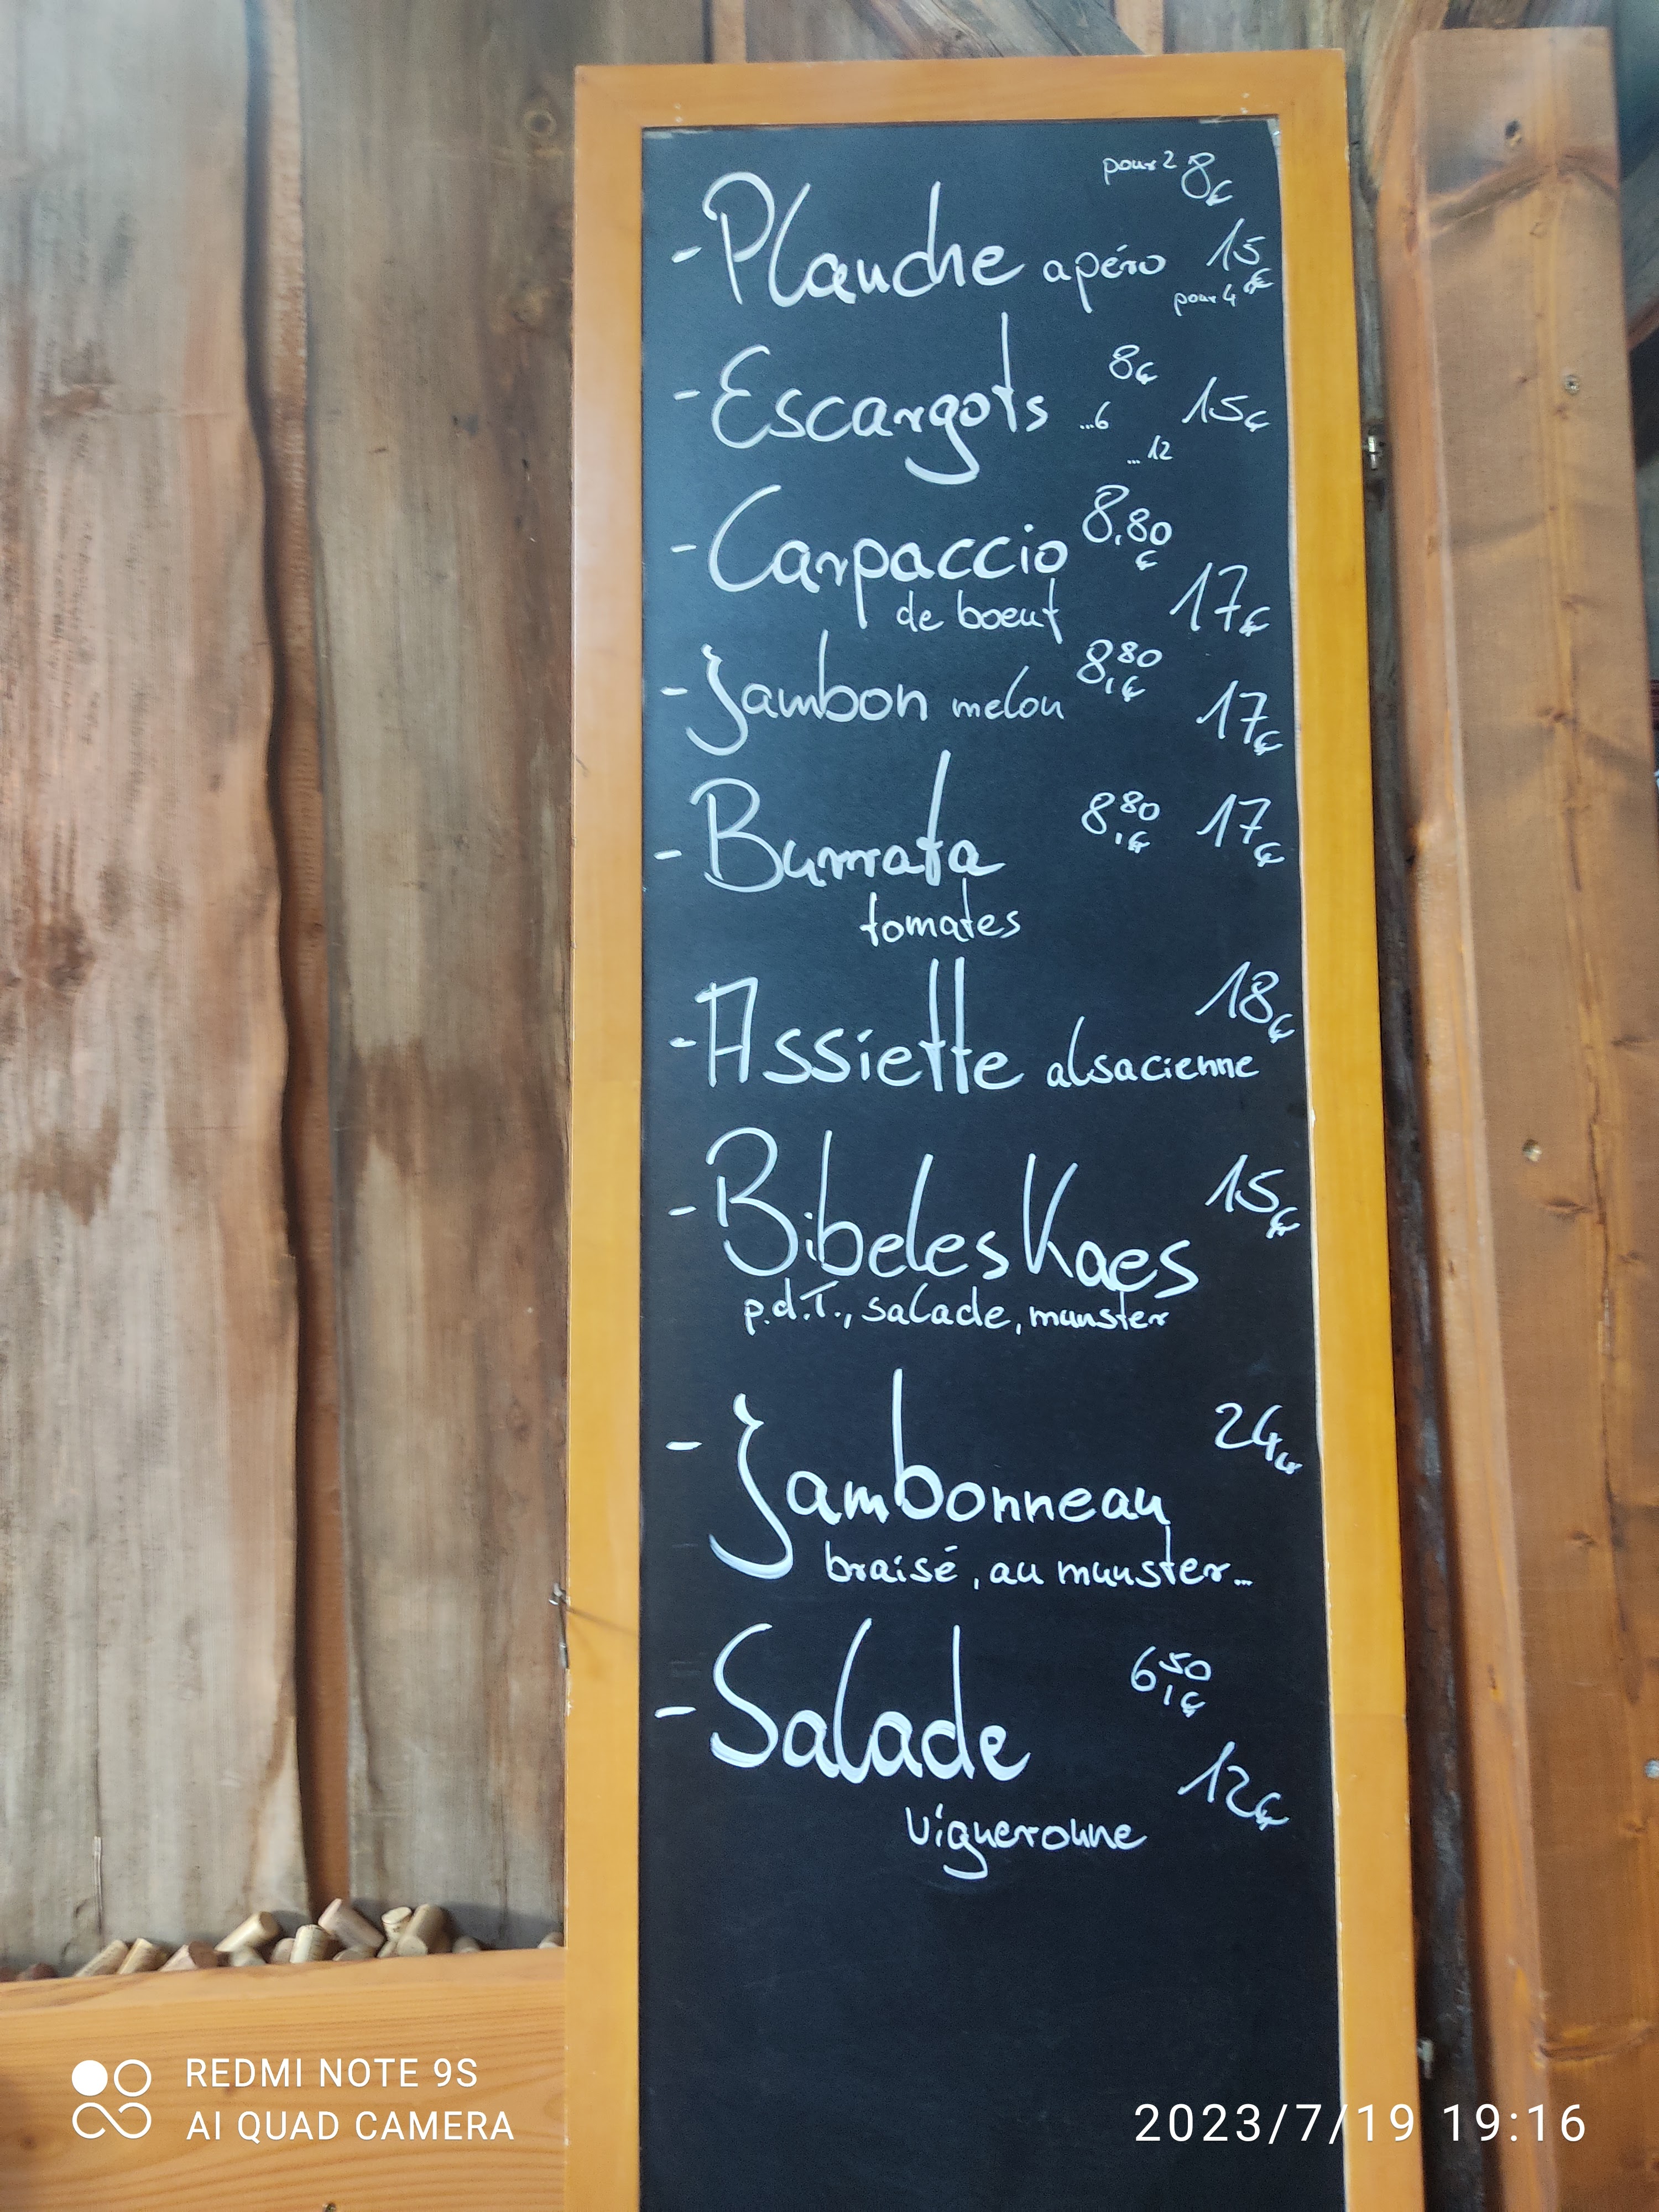 pour 2 8€
- Planche apéro 15€
pour 4
- Escargots ...6 8€ ...12 15€
- Carpaccio 8,80€
de boeuf 17€
- Jambon melon 8,80€ 17€
- Burrata 8,80€ 17€
tomates
- Assiette alsacienne 18€
- Bibeleskaes 15€
p.d.T., salade, munster
- Jambonneau 24€
braisé, au munster...
- Salade 6,50€
vigneronne 12€
REDMI NOTE 9S
AI QUAD CAMERA
2023/7/19 19:16